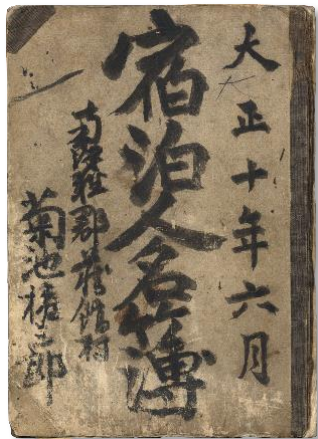 大正十年六月
宿泊人名簿
南津軽郡蔵館村
菊池橘三郎